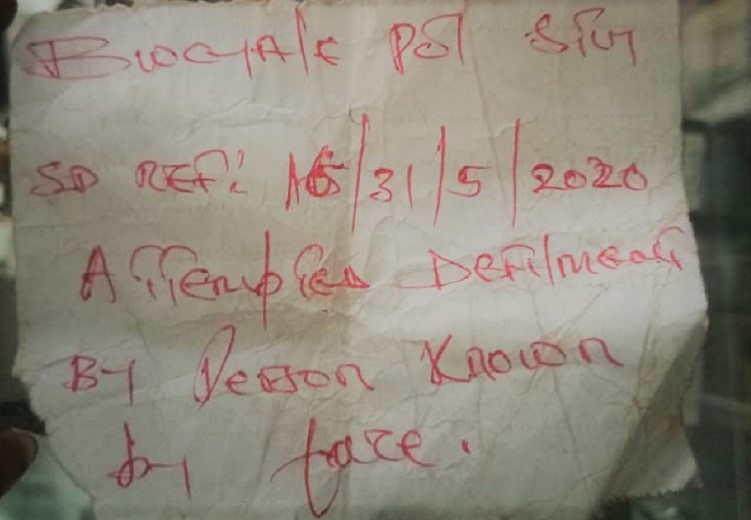 Bwoyale Pol Stn
SD REF: 16/31/5/2020
Attempted Defilment
By Person Known
by face.